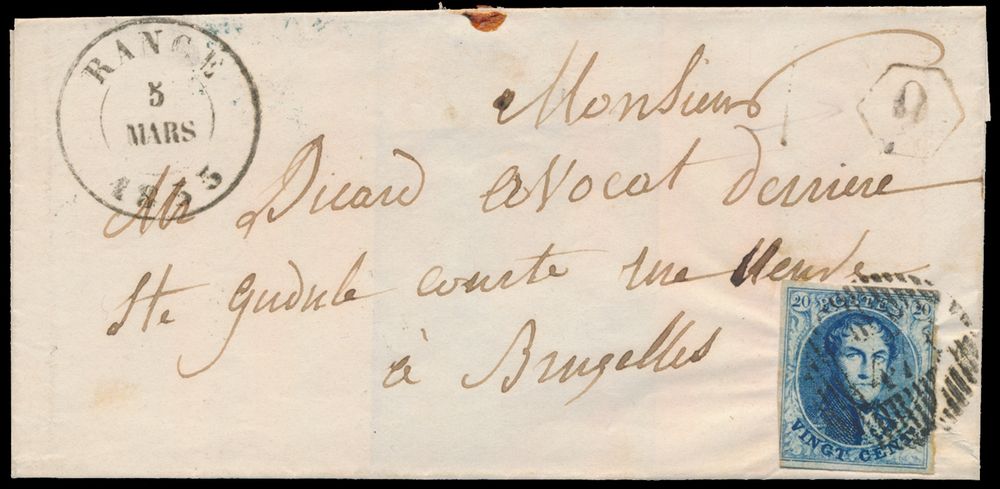 RANCE
5
MARS
1853
Q
Monsieur
Mr Picard avocat derriere
Ste gudule courte rue Neuve
à Bruxelles
20 POSTES 20
VINGT CENT